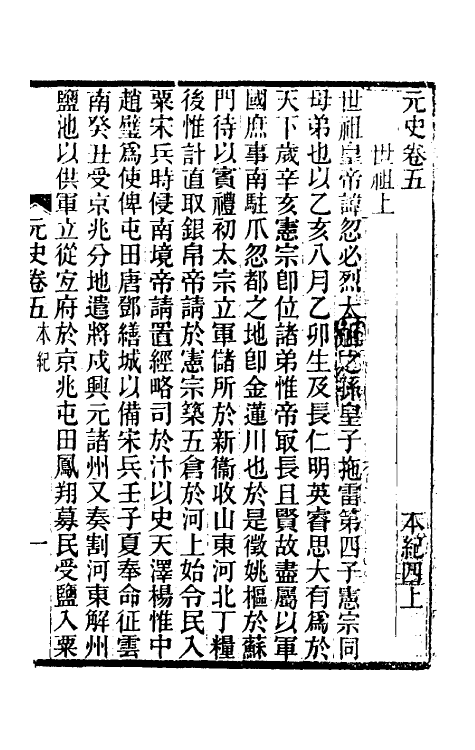 元史卷五　本紀四上
世祖上
世祖皇帝諱忽必烈太祖之孫皇子拖雷第四子憲宗同
母弟也以乙亥八月乙卯生及長仁明英睿思大有爲於
天下歲辛亥憲宗卽位諸弟惟帝㝡長且賢故盡屬以軍
國庶事南駐爪忽都之地卽金蓮川也於是徵姚樞於蘇
門待以賓禮初太宗立軍儲所於新衞收山東河北丁糧
後惟計直取銀帛帝請於憲宗築五倉於河上始令民入
粟宋兵時侵南境帝請置經略司於汴以史天澤楊惟中
趙璧爲使俾屯田唐鄧繕城以備宋兵壬子夏奉命征雲
南癸丑受京兆分地遣將戍興元諸州又奏割河東解州
鹽池以供軍立從宜府於京兆屯田鳳翔募民受鹽入粟
元史卷五　本紀　一